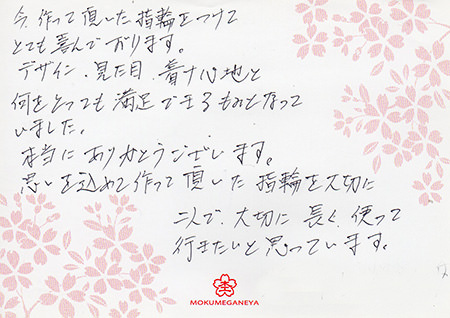 今 作って頂いた指輪をつけて
とても喜んでおります。
デザイン、見た目、着け心地と
何をとっても満足できるものとなって
いました。
本当にありがとうございます。
思いを込めて作って頂いた指輪を大切に
二人で、大切に長く、使って
行きたいと思っています。
MOKUMEGANEYA